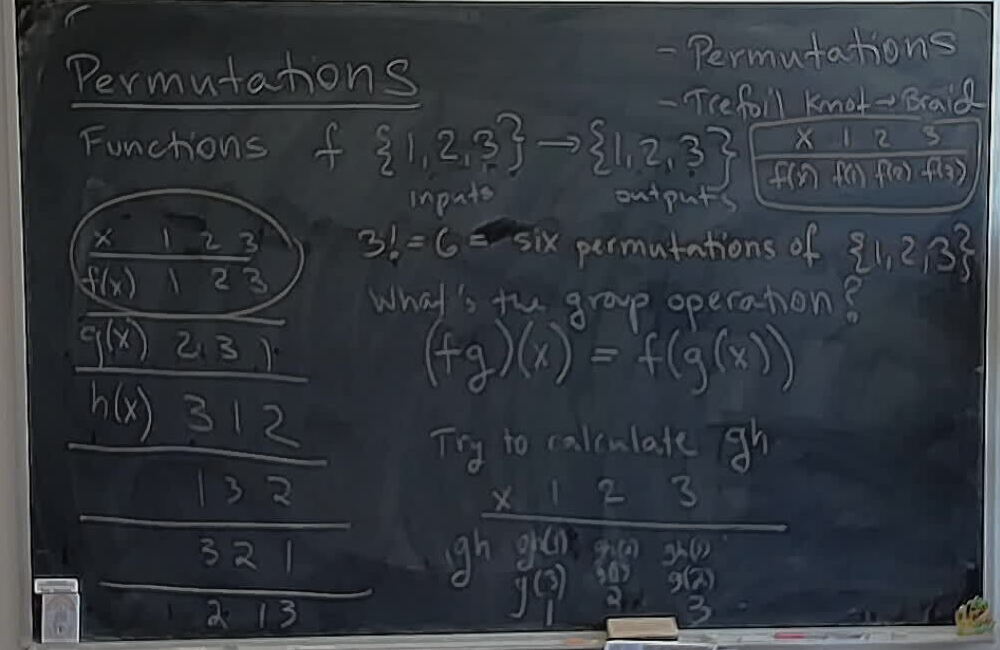 Permutations
- Permutations
- Trefoil Knot → Braid
Functions f {1,2,3} → {1,2,3}
inputs outputs
x 1 2 3
f(x) f(1) f(2) f(3)
x 1 2 3
f(x) 1 2 3
g(x) 2 3 1
h(x) 3 1 2
1 3 2
3 2 1
2 1 3
3! = 6 = six permutations of {1,2,3}
What's the group operation?
(fg)(x) = f(g(x))
Try to calculate gh
x 1 2 3
gh gh(1) gh(2) gh(3)
g(3) g(1) g(2)
1 2 3